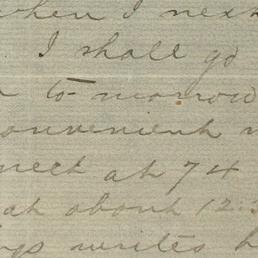 when I next
I shall go
to-morrow
convenient
meet at 74
at about 12:
writes